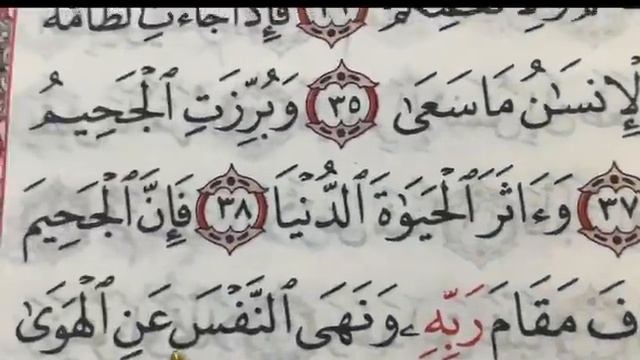 فَإِذَا جَاءَتِ ٱلطَّامَّةُ
ٱلْإِنسَٰنُ مَا سَعَىٰ ٣٥ وَبُرِّزَتِ ٱلْجَحِيمُ
٣٧ وَءَاثَرَ ٱلْحَيَوٰةَ ٱلدُّنْيَا ٣٨ فَإِنَّ ٱلْجَحِيمَ
فَ مَقَامَ رَبِّهِۦ وَنَهَى ٱلنَّفْسَ عَنِ ٱلْهَوَىٰ